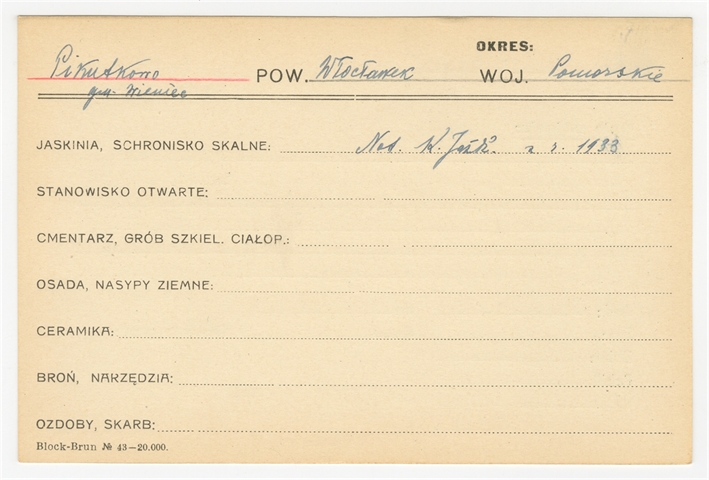 OKRES:
Pikutkowo POW. Włocławek WOJ. Pomorskie
gm. Wieniec
JASKINIA, SCHRONISKO SKALNE: Not. W. Jażdż. z r. 1933
STANOWISKO OTWARTE:
CMENTARZ, GRÓB SZKIEL. CIAŁOP.:
OSADA, NASYPY ZIEMNE:
CERAMIKA:
BROŃ, NARZĘDZIA:
OZDOBY, SKARB:
Block-Brun № 43—20.000.